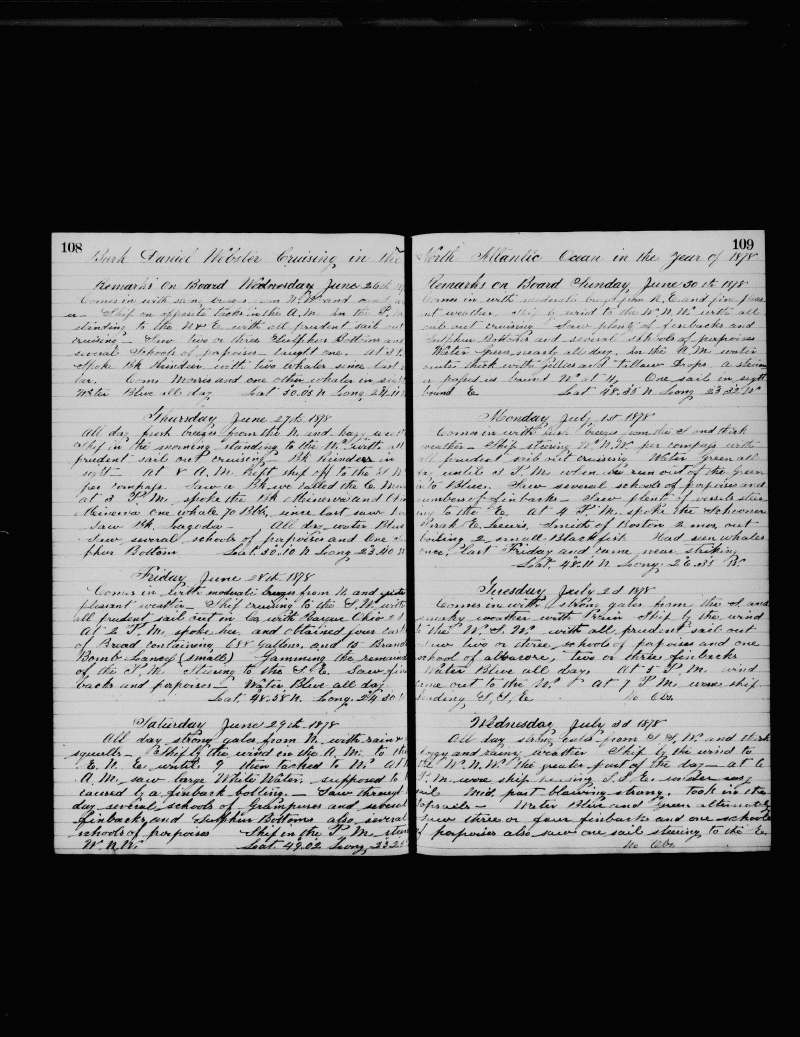 108
Bark Daniel Webster Cruising in the
Remarks On Board Wednesday June 26th
Comes in with breeze from and
Ship on opposite tacks in the A.M. in the P.M.
standing to the N & E with all prudent sail out
cruising - Saw two or three Sulpher Bottoms and
several Schools of porpoises - caught one. At 3 P.
Spoke Bk Reindeer with two whales since last
Com. Morris and one other whaler in sight
Water Blue all day Lat 50.05 N Long 24.11
Thursday June 27th 1878
All day fresh breeze from the N and hazy
Ship in the morning standing to the W. with all
prudent sail out cruising Bk Reindeer in
sight - At 8 A.M. kept ship off to the S W
per compass. Saw a Bk we called the C. M
at 3 P.M. spoke the Bk Minerva and Ohio
Minerva one whale 70 Bbls, since last saw
Saw Bk. Lagoda - All day water Blue
Saw several schools of porpoises and One
pher Bottom Lat. 50.10 N Long 23.40
Friday June 28th 1878
Comes in with moderate breezes from N. and quite
pleasant weather - Ship cruising to the S.W. with
all prudent sail out in Co. with Barque Ohio 2d
At 2 P.M. spoke her and obtained four casks
of Bread containing 684 Gallons, and 15 Brand
Bomb Lances (small) Gamming the remaind
of the P.M. Steering to the S.E. Saw fin
backs and porpoises - Water Blue all day
Lat. 48.58 N. Long. 24.30
Saturday June 29th 1878
All day strong gales from N. with rain &
squalls - Ship by the wind in the A.M. to the
E.N.E. until 9 then tacked to W. at
A.M. saw large White Water, supposed to
caused by a finback bolting. - Saw through
day several schools of Grampuses and several
finbacks and Sulpher Bottoms also several
schools of porpoises Ship in the P.M. steer
W.N.W. Lat. 49.02 Long 23.25
109
North Atlantic Ocean in the year of 1878
Remarks on Board Sunday June 30th 1878
Comes in with moderate breezes from N.E and fine pleas
ant weather. Ship by wind to the W.N.W. with all
sail out cruising Saw plenty of finbacks and
Sulpher Bottoms and several schools of porpoises
Water Green nearly all day. in the A.M. water
quite thick with Gillies and Tallow Drops. a steam
er passed us bound W. at 4, One sail in sight
bound E. Lat 48.35 N Long 23.32 W
Monday July 1st 1878
Comes in with breezes from the S and thick
weather - Ship steering W.N.W per compass with
all prudent sail out cruising Water Green all
day until 3 P.M. when we run out of the Green
into Blue. Saw several schools of porpoises and
numbers of finbacks - Saw plenty of vessels steer
ing to the E. At 4 P.M. spoke the Schooner
Sarah E. Lewis, Smith of Boston 2 mos. out
boiling 2 small Blackfish Had seen whales
once, last Friday and came near striking
Lat. 48.11 N Long. 26.35 W
Tuesday July 2d 1878
Comes in with strong gales from the S. and
smoky weather with rain Ship by the wind
to the W.S.W. with all prudent sail out
Saw two or three schools of porpoises and one
school of albacore, two or three finbacks
Water Blue all day, At 5 P.M. wind
came out to the W. At 7 P.M. wore ship
heading S.S.E No Obs.
Wednesday July 3d 1878
All day strong gales from S.S.W. and thick
foggy and rainy weather Ship by the wind to
the W.N.W. the greater part of the day - at 6
P.M. wore ship heading S.S.E. under easy
sail Mid. part blowing strong. took in the
topsails - Water Blue and Green alternate
Saw three or four finbacks and one school
of porpoises also saw one sail steering to the E.
No Obs